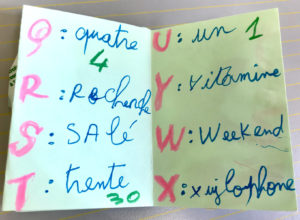 Q : quatre
4
R : Recherche
S : SAlé
T : trente
30
U : un 1
Y : Vitamine
W : Weekend
X : xylophone